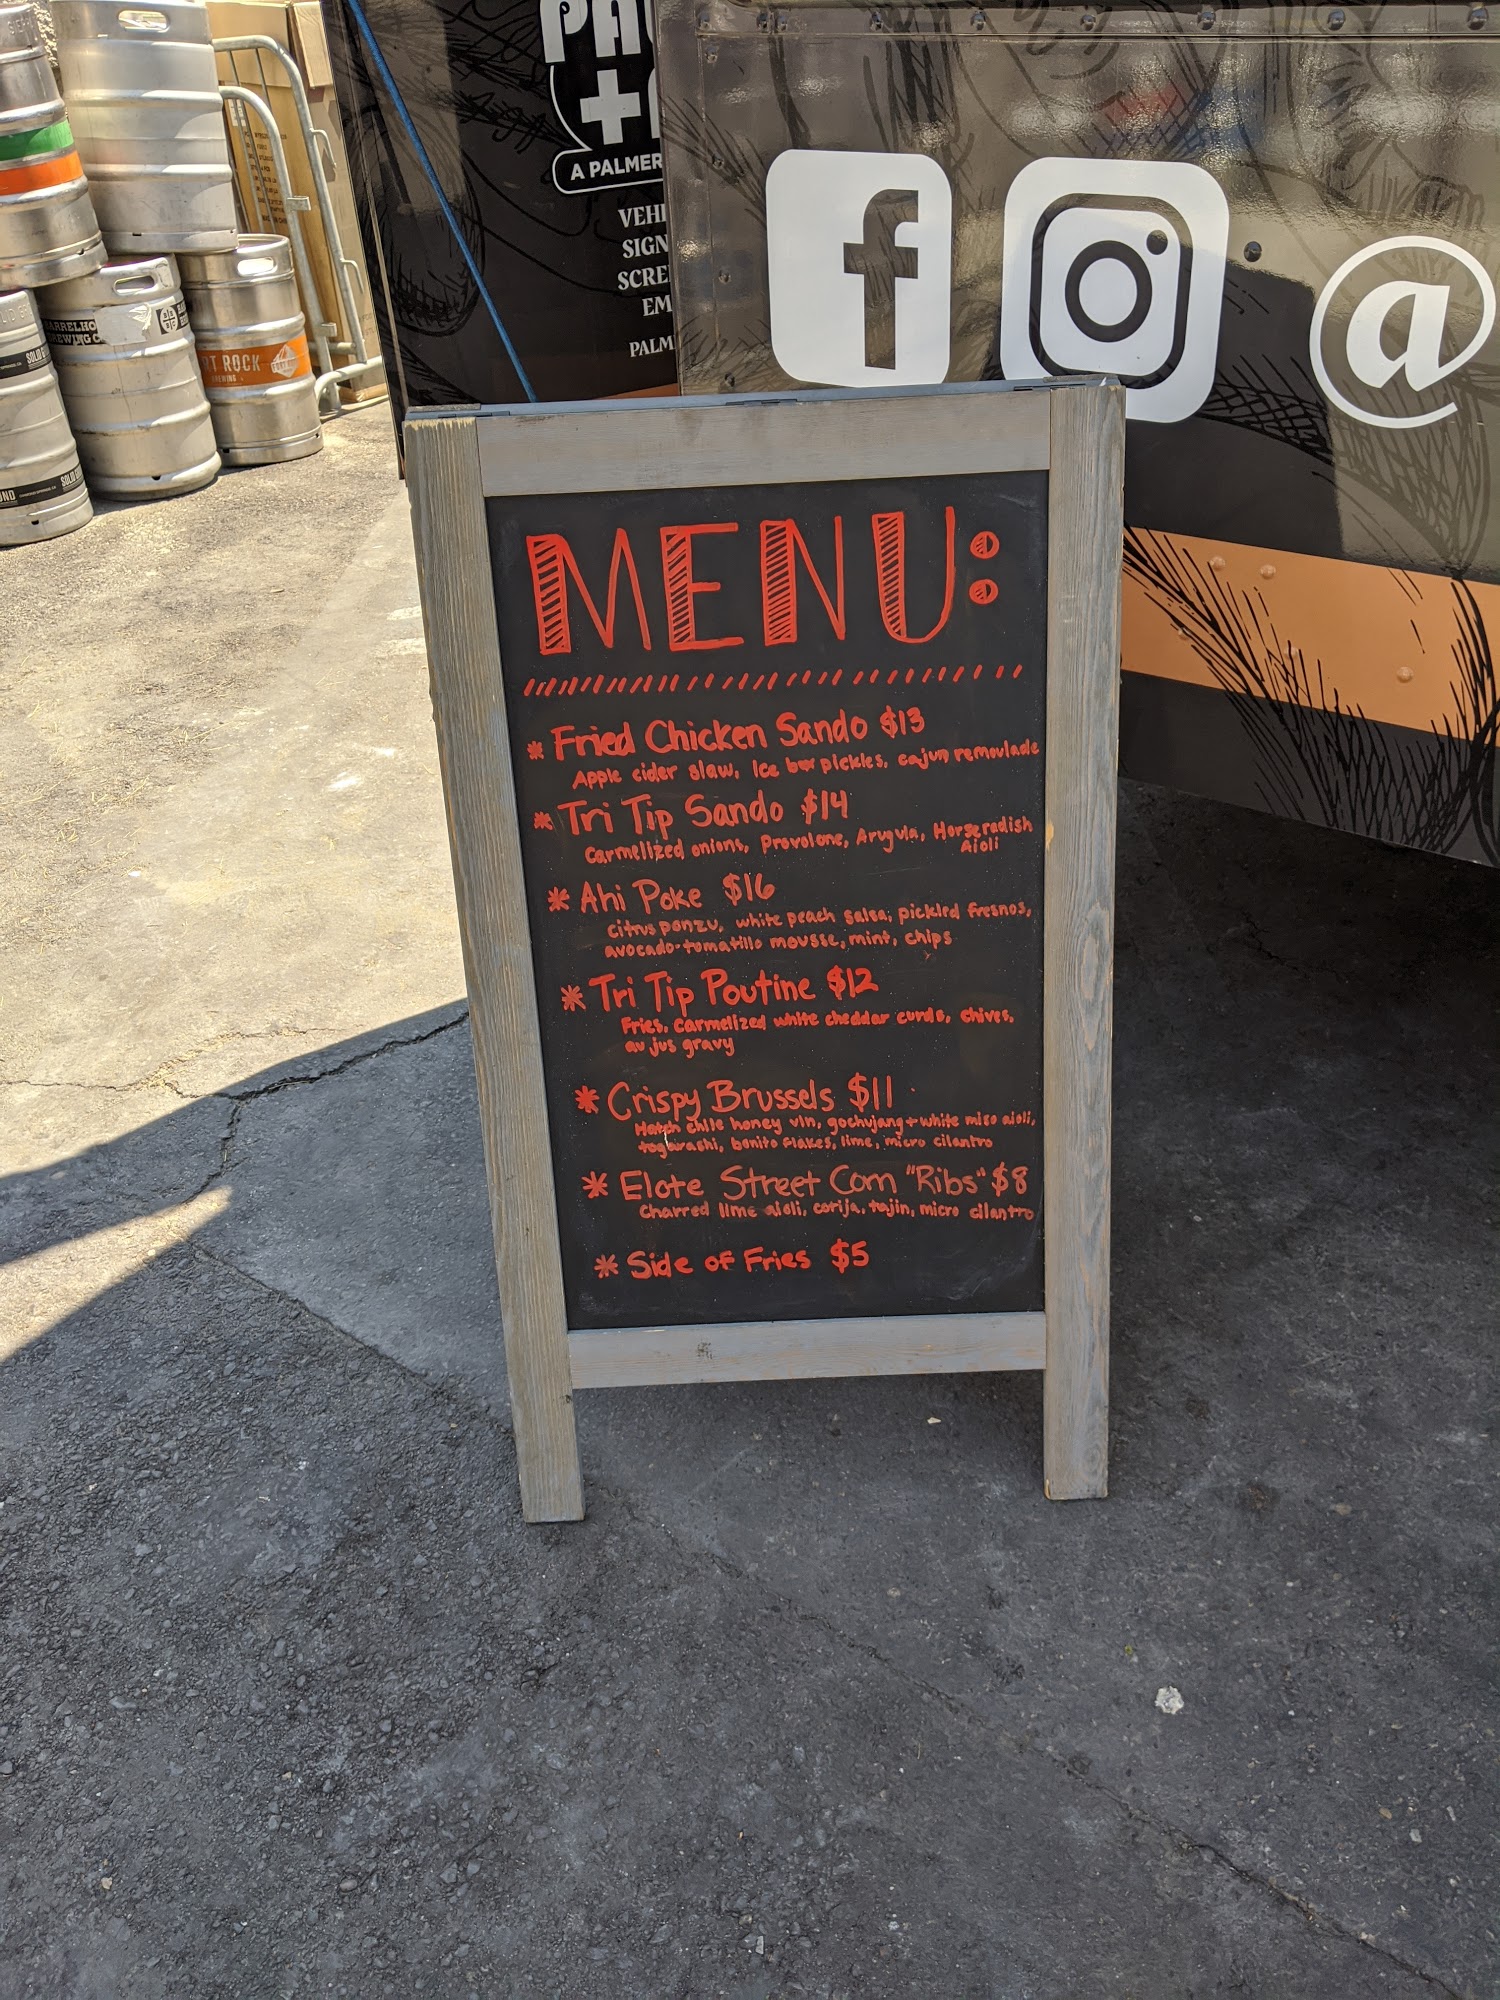 PA
+
A PALMER
VEHI
SIGN
SCRE
EM
PALM
f
@
BARRELHO
BREWING C
SOLID
SOLID
RT ROCK
BREWING
MENU:
* Fried Chicken Sando $13
Apple cider slaw, Ice box pickles, cajun remoulade
* Tri Tip Sando $14
Carmelized onions, Provolone, Arugula, Horseradish
Aioli
* Ahi Poke $16
citrus ponzu, white peach salsa, pickled fresnos,
avocado-tomatillo mousse, mint, chips
* Tri Tip Poutine $12
Fries, Carmelized white cheddar curds, chives,
au jus gravy
* Crispy Brussels $11
Hatch chile honey vin, gochujang + white miso aioli,
togarashi, bonito flakes, lime, micro cilantro
* Elote Street Corn "Ribs" $8
Charred lime aioli, cotija, tajin, micro cilantro
* Side of Fries $5